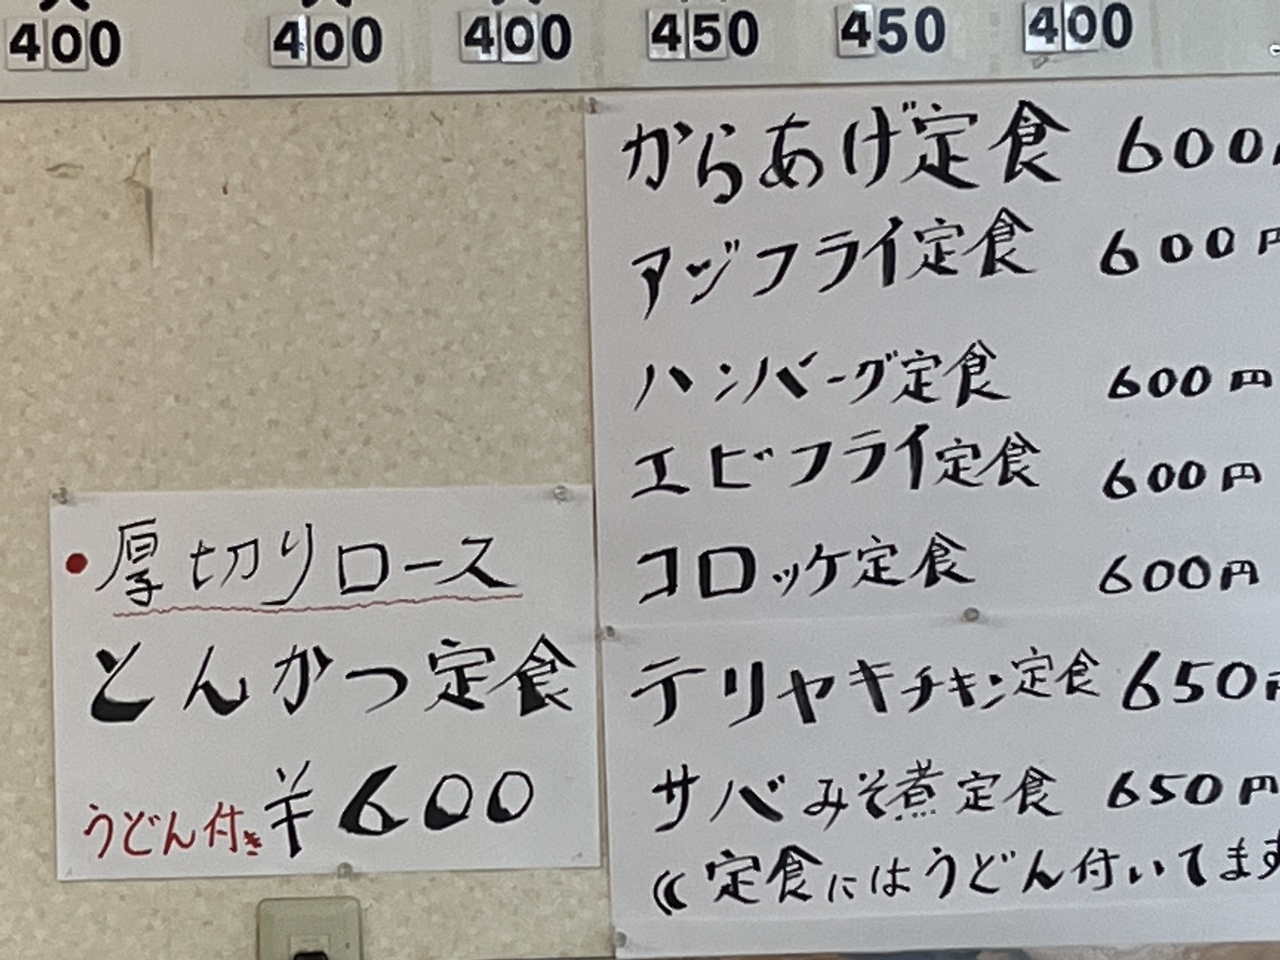 400 400 400 450 450 400
からあげ定食 600
アジフライ定食 600円
ハンバーグ定食 600円
エビフライ定食 600円
コロッケ定食 600円
テリヤキチキン定食 650円
サバみそ煮定食 650円
《定食にはうどん付いてます
・厚切りロース
とんかつ定食
うどん付き ¥600